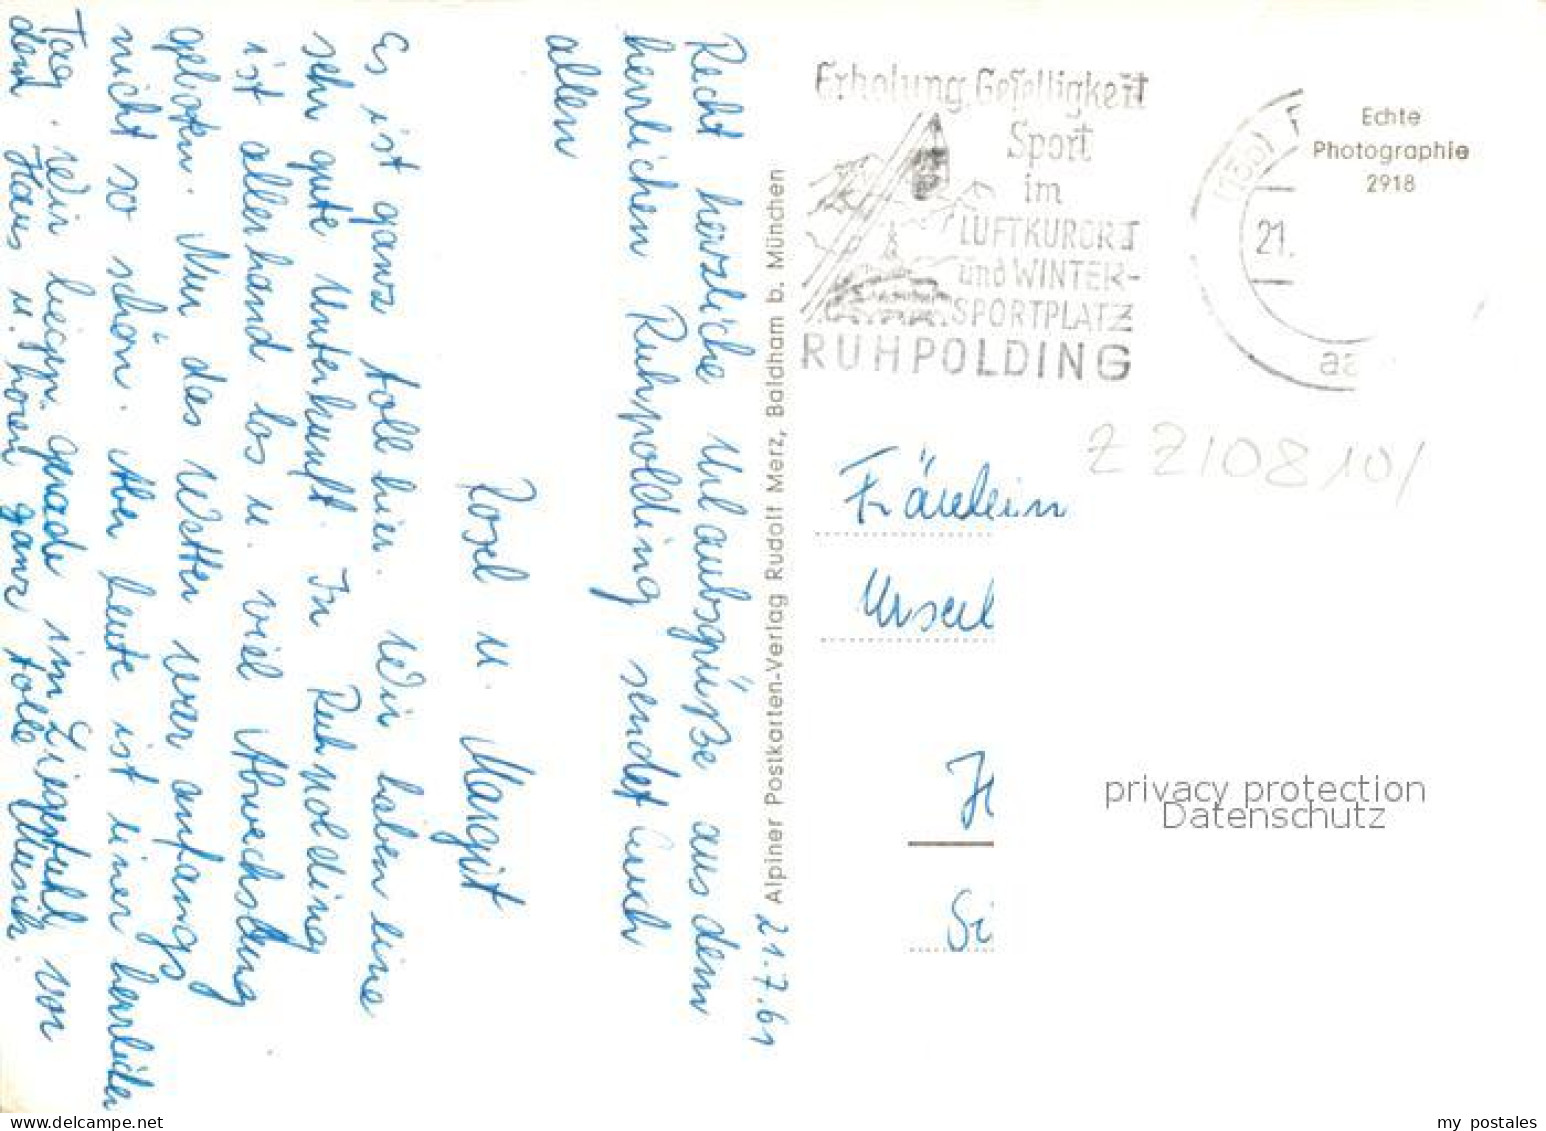 21.7.61
Recht herzliche Urlaubsgrüße aus dem
herrlichen Ruhpolding sendet Euch
allen
Rosel u. Margit
Es ist ganz toll hier. Wir haben eine
sehr gute Unterkunft. In Ruhpolding
ist allerhand los u. viel Abwechslung
geboten. Nur das Wetter war anfangs
nicht so schön. Aber heute ist einer herrlicher
Tag. Wir liegen gerade im Liegestuhl vor
dem Haus u. hören ganz tolle Musik.
Alpiner Postkarten-Verlag Rudolf Merz, Baldham b. München
Erholung, Geselligkeit
Sport
im
LUFTKURORT
und WINTER-
SPORTPLATZ
RUHPOLDING
21.
aa
Echte
Photographie
2918
Fräulein
Ursel
H
Si
privacy protection
Datenschutz
my postales